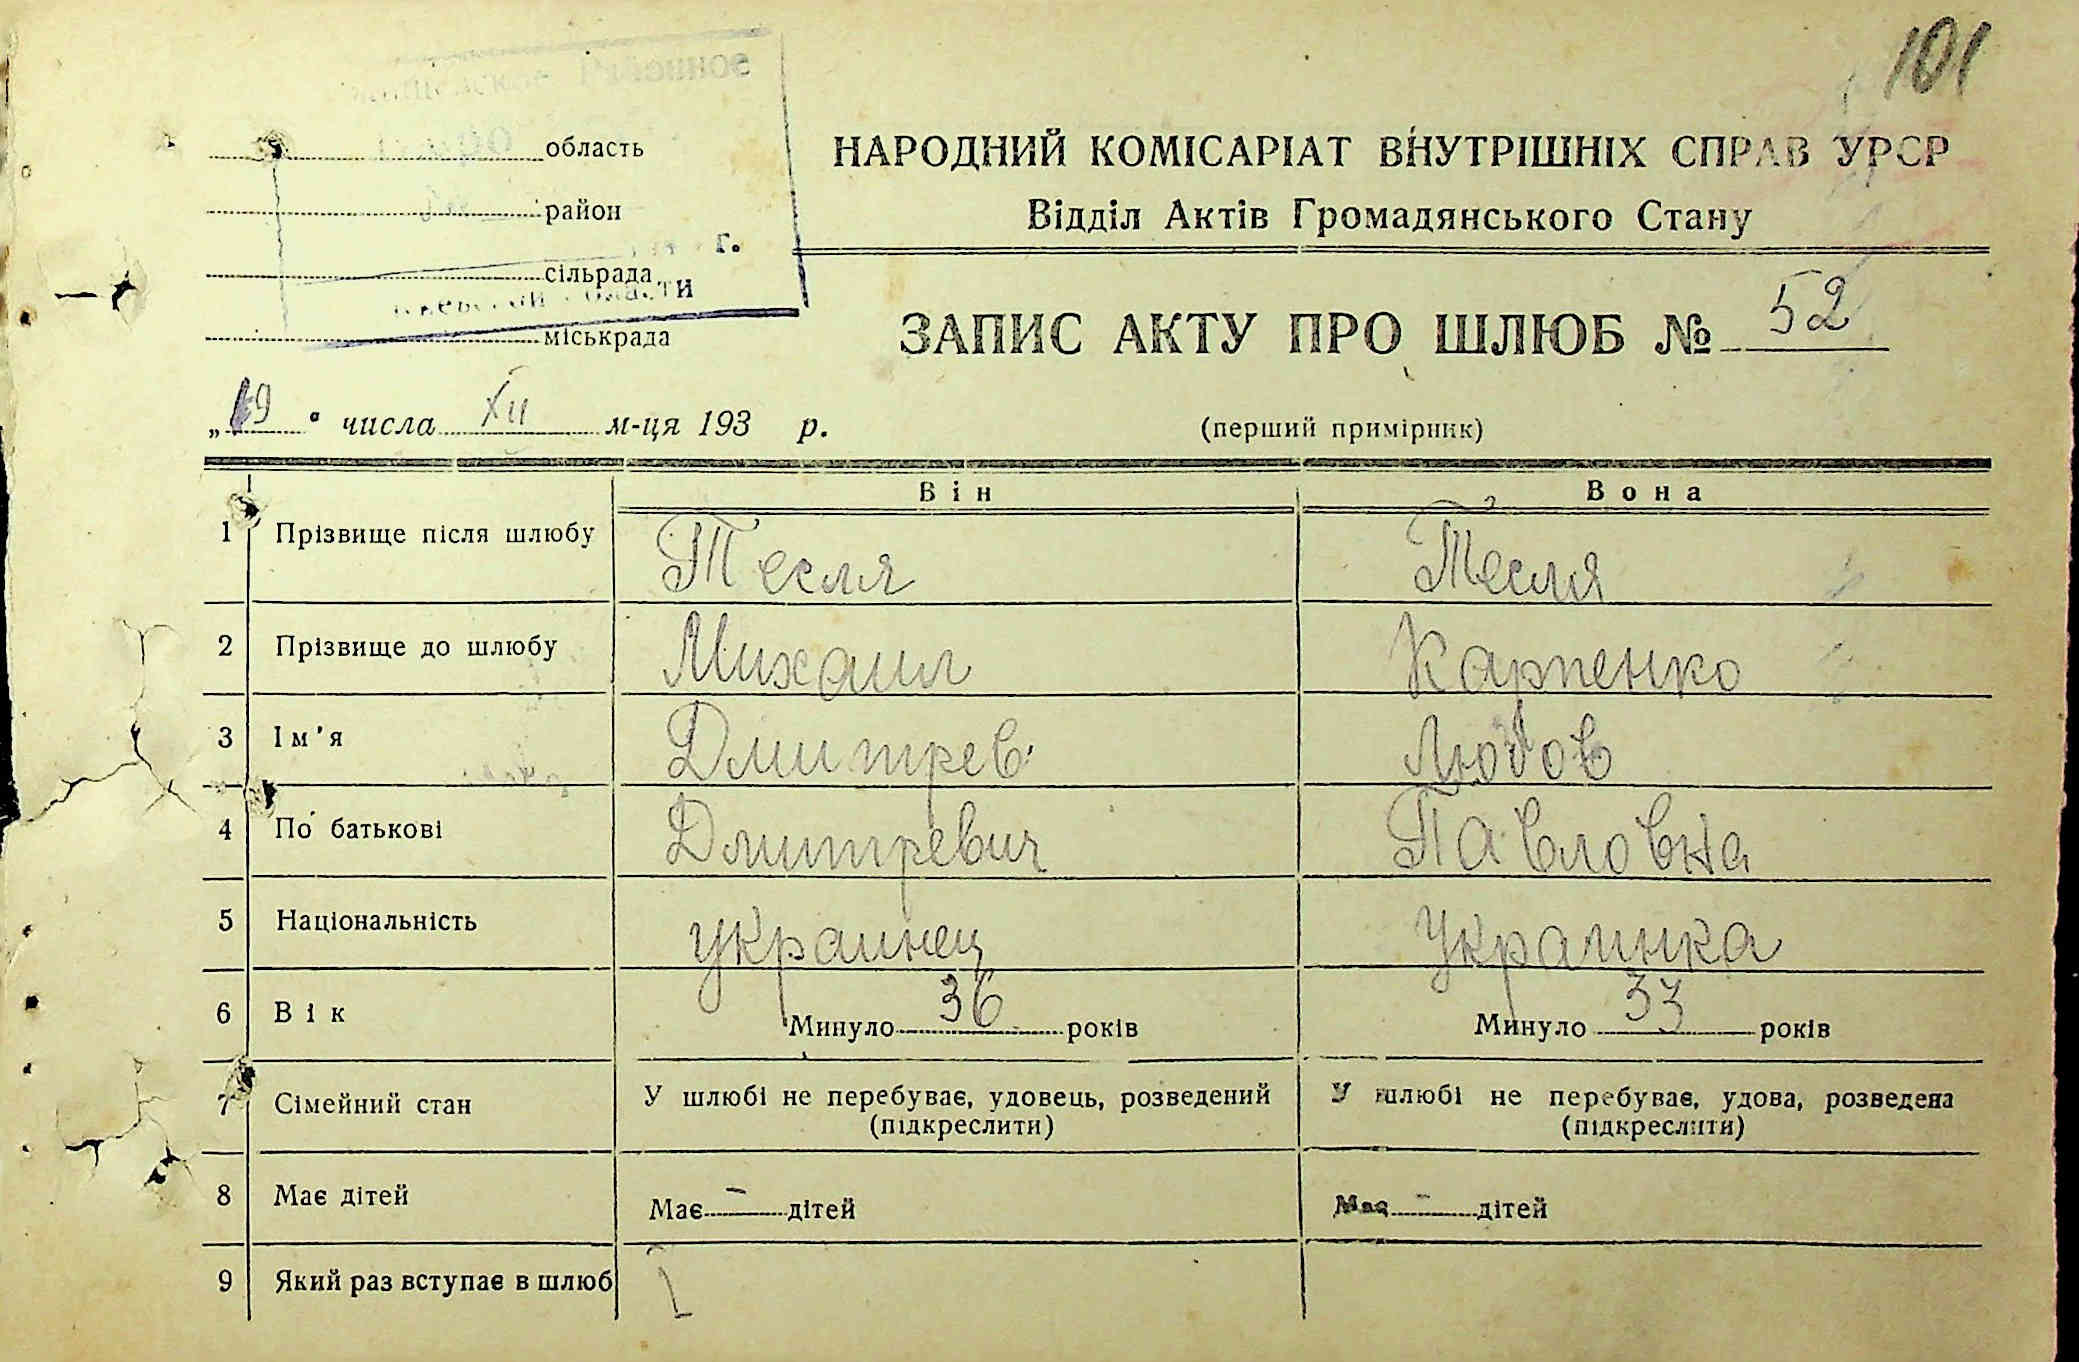 101
область
район
г.
сільрада
міськрада
НАРОДНИЙ КОМІСАРІАТ ВНУТРІШНІХ СПРАВ УРСР
Відділ Актів Громадянського Стану
ЗАПИС АКТУ ПРО ШЛЮБ № 52
„19" числа XII м-ця 193 р.
(перший примірник)
Він Вона
1 Прізвище після шлюбу Тесля Тесля
2 Прізвище до шлюбу Михаил Карпенко
3 Ім'я Дмитрев Любов
4 По батькові Дмитревич Павловна
5 Національність украинец Украинка
6 Вік Минуло 36 років Минуло 33 років
7 Сімейний стан У шлюбі не перебуває, удовець, розведений У шлюбі не перебуває, удова, розведена
(підкреслити) (підкреслити)
8 Має дітей Має - дітей Має - дітей
9 Який раз вступає в шлюб I